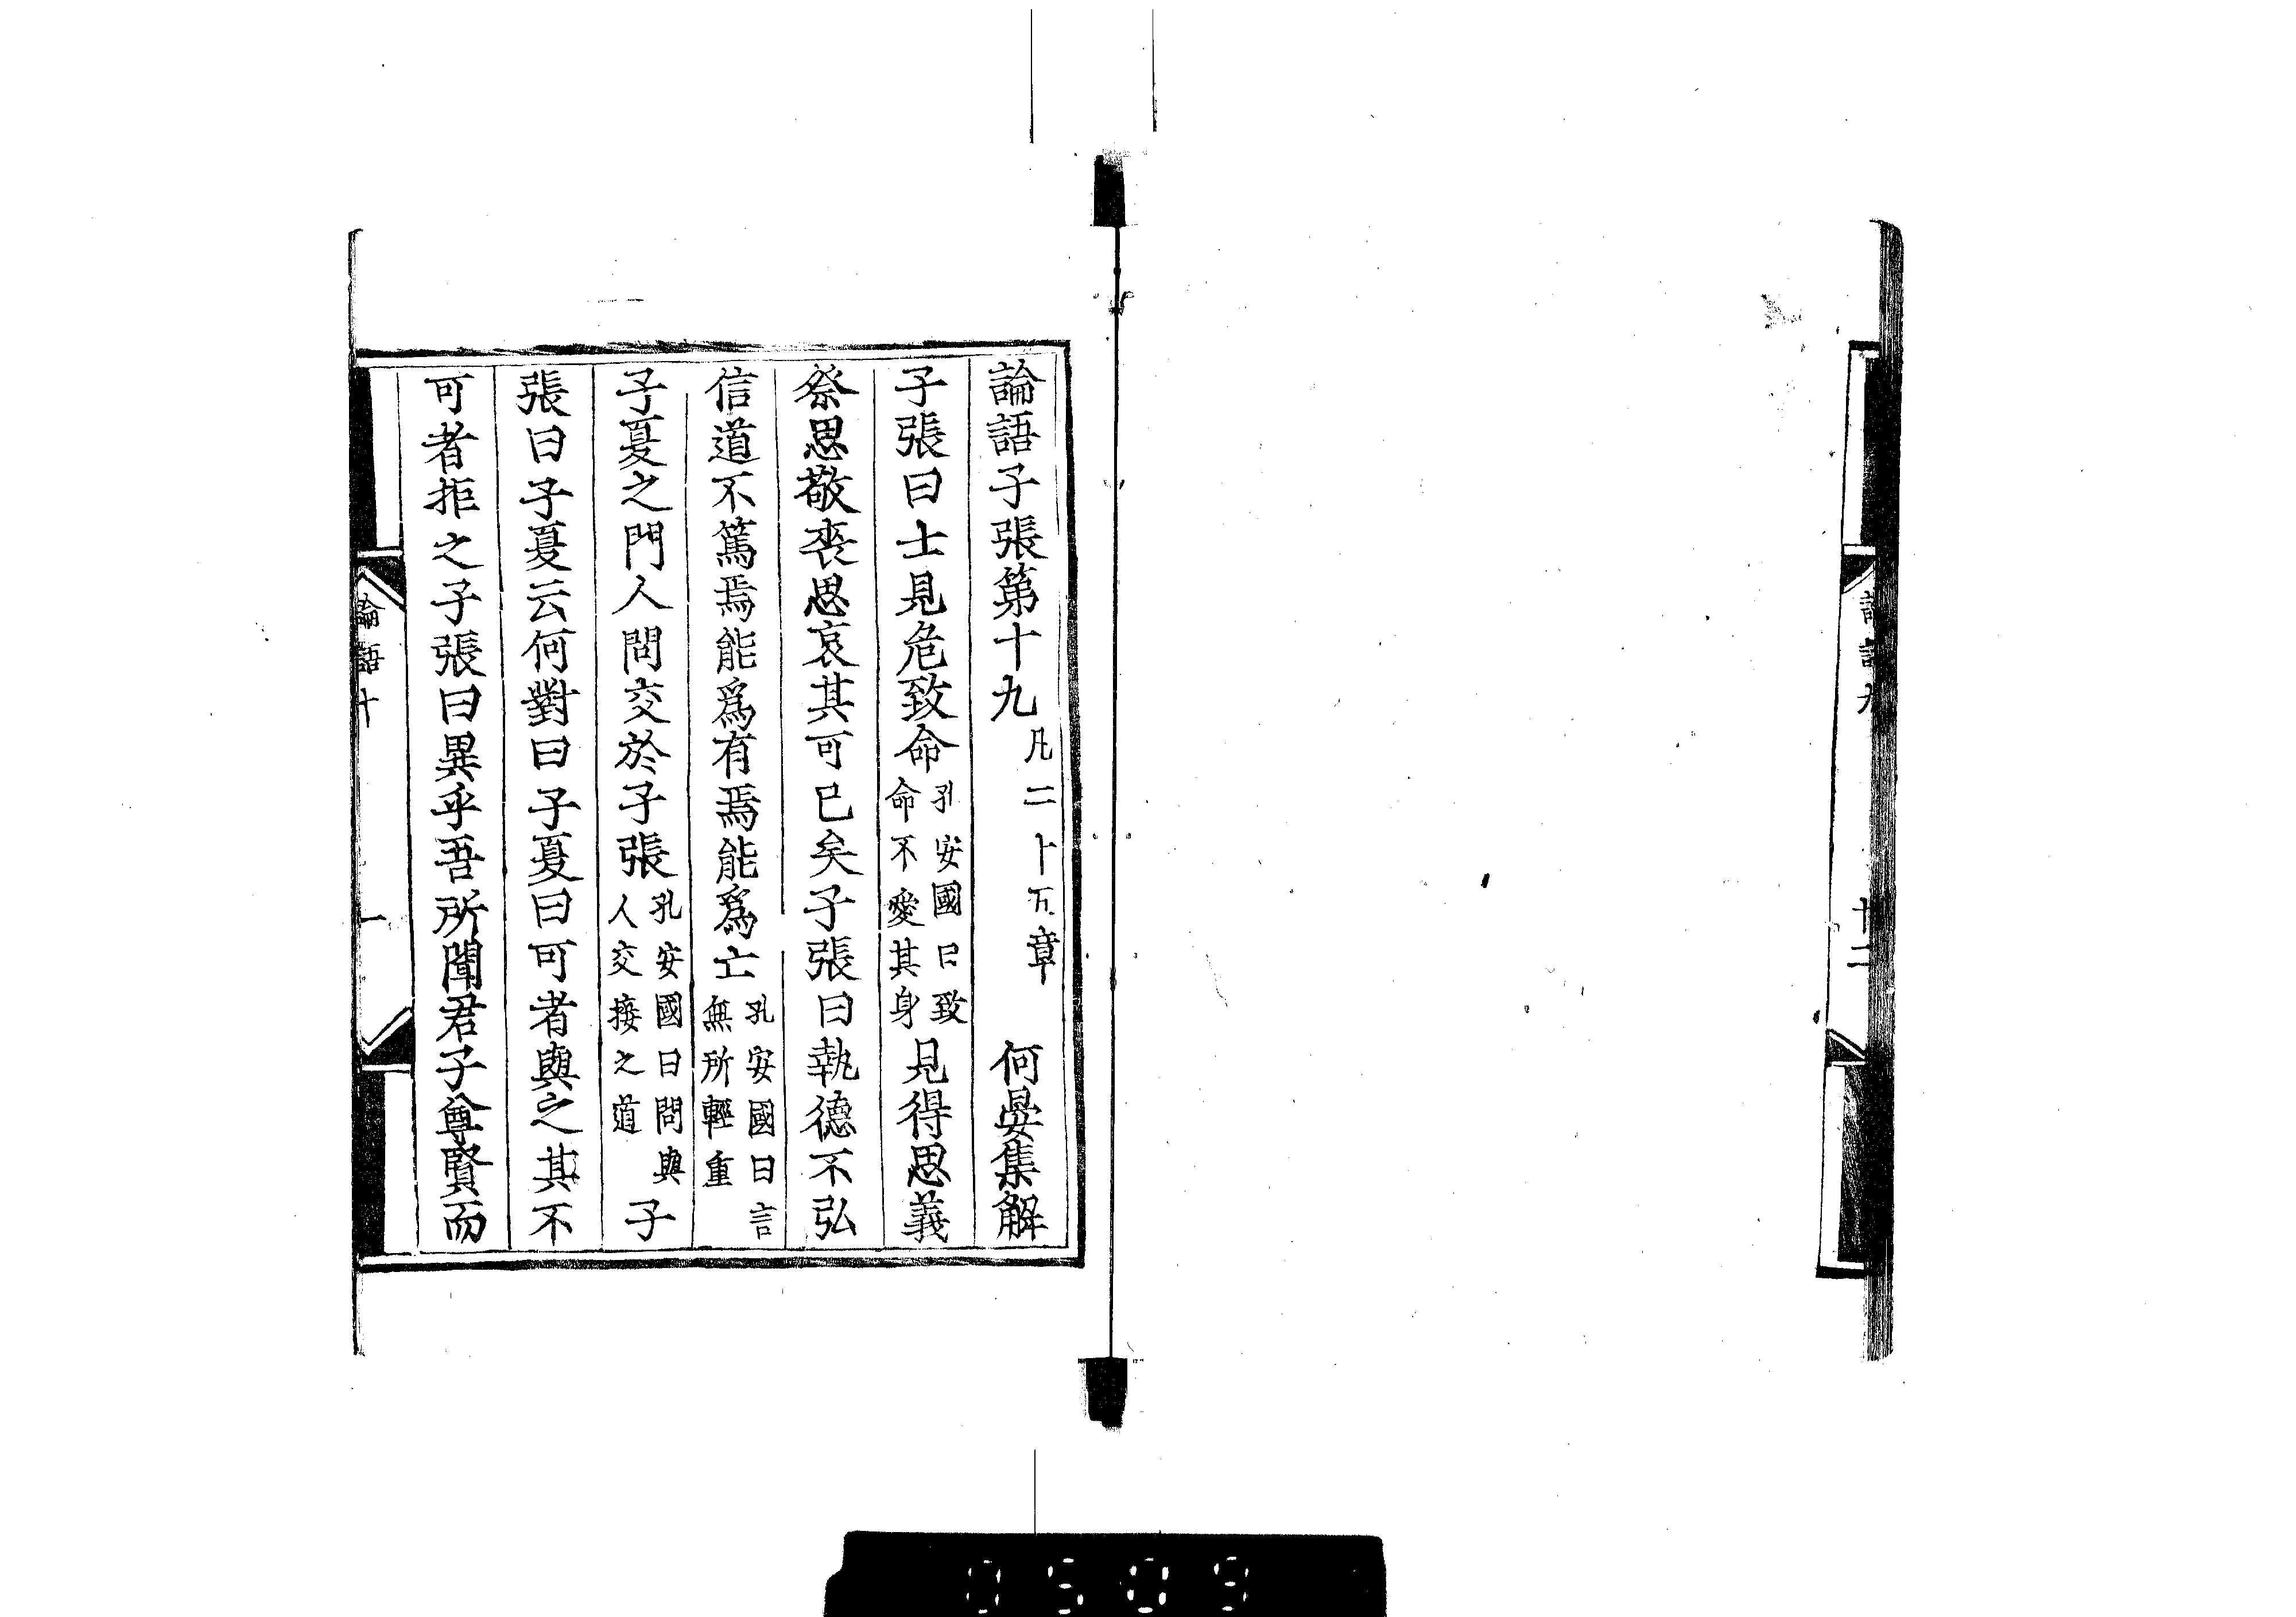 論語子張第十九 凡二十五章 何晏集解
子張曰士見危致命 孔安國曰致命不愛其身 見得思義
祭思敬喪思哀其可已矣子張曰執德不弘
信道不篤焉能爲有焉能爲亡 孔安國曰言無所輕重
子夏之門人問交於子張 孔安國曰問與人交接之道 子
張曰子夏云何對曰子夏曰可者與之其不
可者拒之子張曰異乎吾所聞君子尊賢而
論語十 一
論語九 廿二
0509